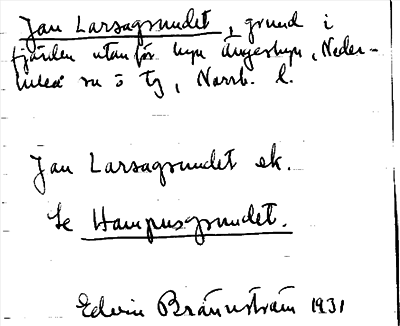 Jan Larsagrundet, grund i
fjärden utanför byn Ängesbyn, Neder-
luleå sn ö tg, Norrb. l.
Jan Larsagrundet ek.
Se Hampusgrundet.
Edvin Brännström 1931